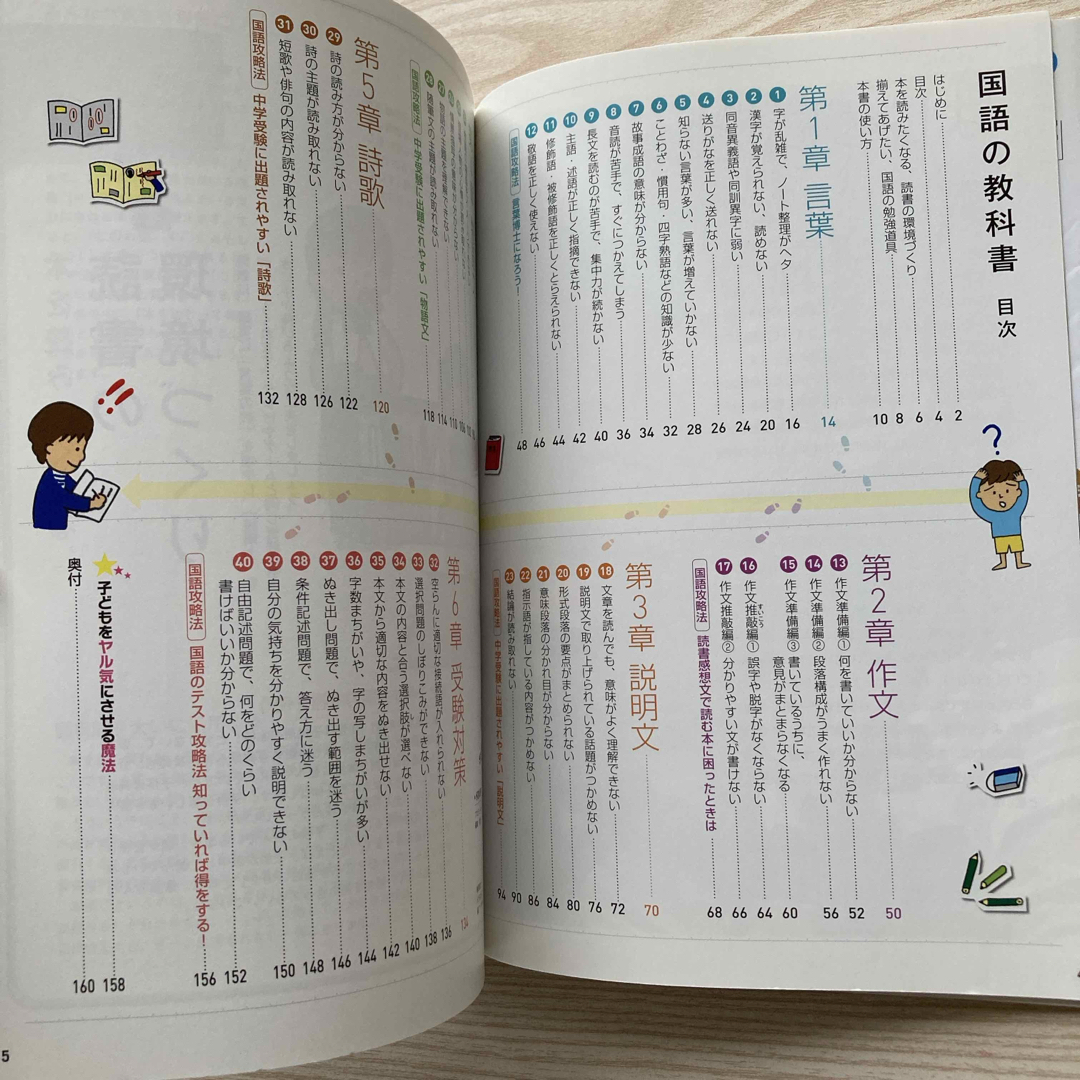 国語の教科書 目次
はじめに 2
目次 4
本を読みたくなる、読書の環境づくり 6
揃えてあげたい、国語の勉強道具 8
本書の使い方 10
第1章 言葉 14
1 字が乱雑で、ノート整理がヘタ 16
2 漢字が覚えられない、読めない 20
3 同音異義語や同訓異字に弱い 24
4 送りがなを正しく送れない 26
5 知らない言葉が多い、言葉が増えていかない 28
6 ことわざ・慣用句・四字熟語などの知識が少ない 32
7 故事成語の意味が分からない 34
8 音読が苦手で、すぐにつかえてしまう 36
9 長文を読むのが苦手で、集中力が続かない 40
10 主語・述語が正しく指摘できない 42
11 修飾語・被修飾語を正しくとらえられない 44
12 敬語を正しく使えない 46
国語攻略法 言葉博士になろう! 48
第2章 作文 50
13 作文準備編① 何を書いていいか分からない 52
14 作文準備編② 段落構成がうまく作れない 56
15 作文準備編③ 書いているうちに、
意見がまとまらなくなる 60
16 作文推敲編① 誤字や脱字がなくならない 64
すいこう
17 作文推敲編② 分かりやすい文が書けない 66
国語攻略法 読書感想文で読む本に困ったときは 68
第3章 説明文 70
18 文章を読んでも、意味がよく理解できない 72
19 説明文で取り上げられている話題がつかめない 76
20 形式段落の要点がまとめられない 80
21 意味段落の分かれ目が分からない 84
22 指示語が指している内容がつかめない 86
23 結論が読み取れない 90
国語攻略法 中学受験に出題されやすい「説明文」 94
28 随筆文の主題が読み取れない 114
国語攻略法 中学受験に出題されやすい「物語文」 118
第5章 詩歌 120
29 詩の読み方が分からない 122
30 詩の主題が読み取れない 126
31 短歌や俳句の内容が読み取れない 128
国語攻略法 中学受験に出題されやすい「詩歌」 132
第6章 受験対策 134
32 空らんに適切な接続語が入れられない 136
33 選択問題のしぼりこみができない 138
34 本文の内容と合う選択肢が選べない 140
し
35 本文から適切な内容をぬき出せない 142
36 字数まちがいや、字の写しまちがいが多い 144
37 ぬき出し問題で、ぬき出す範囲を迷う 146
38 条件記述問題で、答え方に迷う 148
39 自分の気持ちを分かりやすく説明できない 150
40 自由記述問題で、何をどのくらい
書けばいいか分からない 152
国語攻略法 国語のテスト攻略法 知っていれば得をする! 156
子どもをヤル気にさせる魔法 158
奥付 160
5